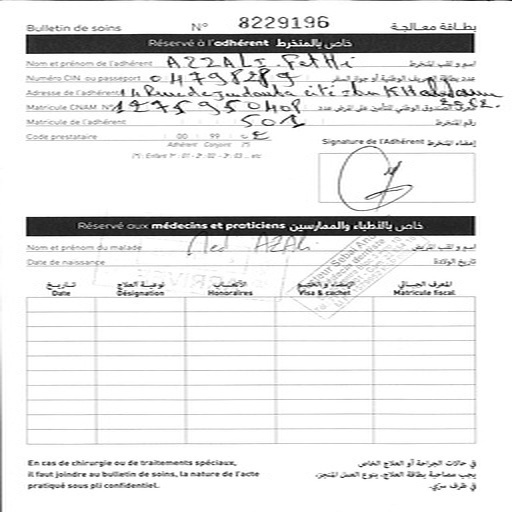 Bulletin de soins N° 8229196 بطاقة معالجة
Réservé à l'adhérent خاص بالمنخرط
Nom et prénom de l'adhérent AZZALI Fethi اسم و لقب المنخرط
Numéro CIN ou passeport 04798289 عدد بطاقة التعريف الوطنية أو جواز السفر
Adresse de l'adhérent 14 Rue de cité Ibn Khaldoun
2062.
Matricule CNAM N° 1275950408 الصندوق الوطني للتأمين على المرض عدد
Matricule de l'adhérent 501 رقم المنخرط
Code prestataire 00 99 02
Adhérent Conjoint (*)
(*) : Enfant 1er : 01 - 2e : 02 - 3e : 03 ... etc
Signature de l'Adhérent إمضاء المنخرط
Réservé aux médecins et praticiens خاص بالأطباء والممارسين
Nom et prénom du malade Med AZALi اسم و لقب المريض
Date de naissance تاريخ الولادة
تاريخ نوعية العلاج الأتعاب الإمضاء و الختم المعرف الجبائي
Date Désignation Honoraires Visa & cachet Matricule fiscal
En cas de chirurgie ou de traitements spéciaux,
il faut joindre au bulletin de soins, la nature de l'acte
pratiqué sous pli confidentiel.
في حالات الجراحة أو العلاج الخاص
يجب مصاحبة بطاقة العلاج، بنوع العمل المنجز،
في ظرف سري.